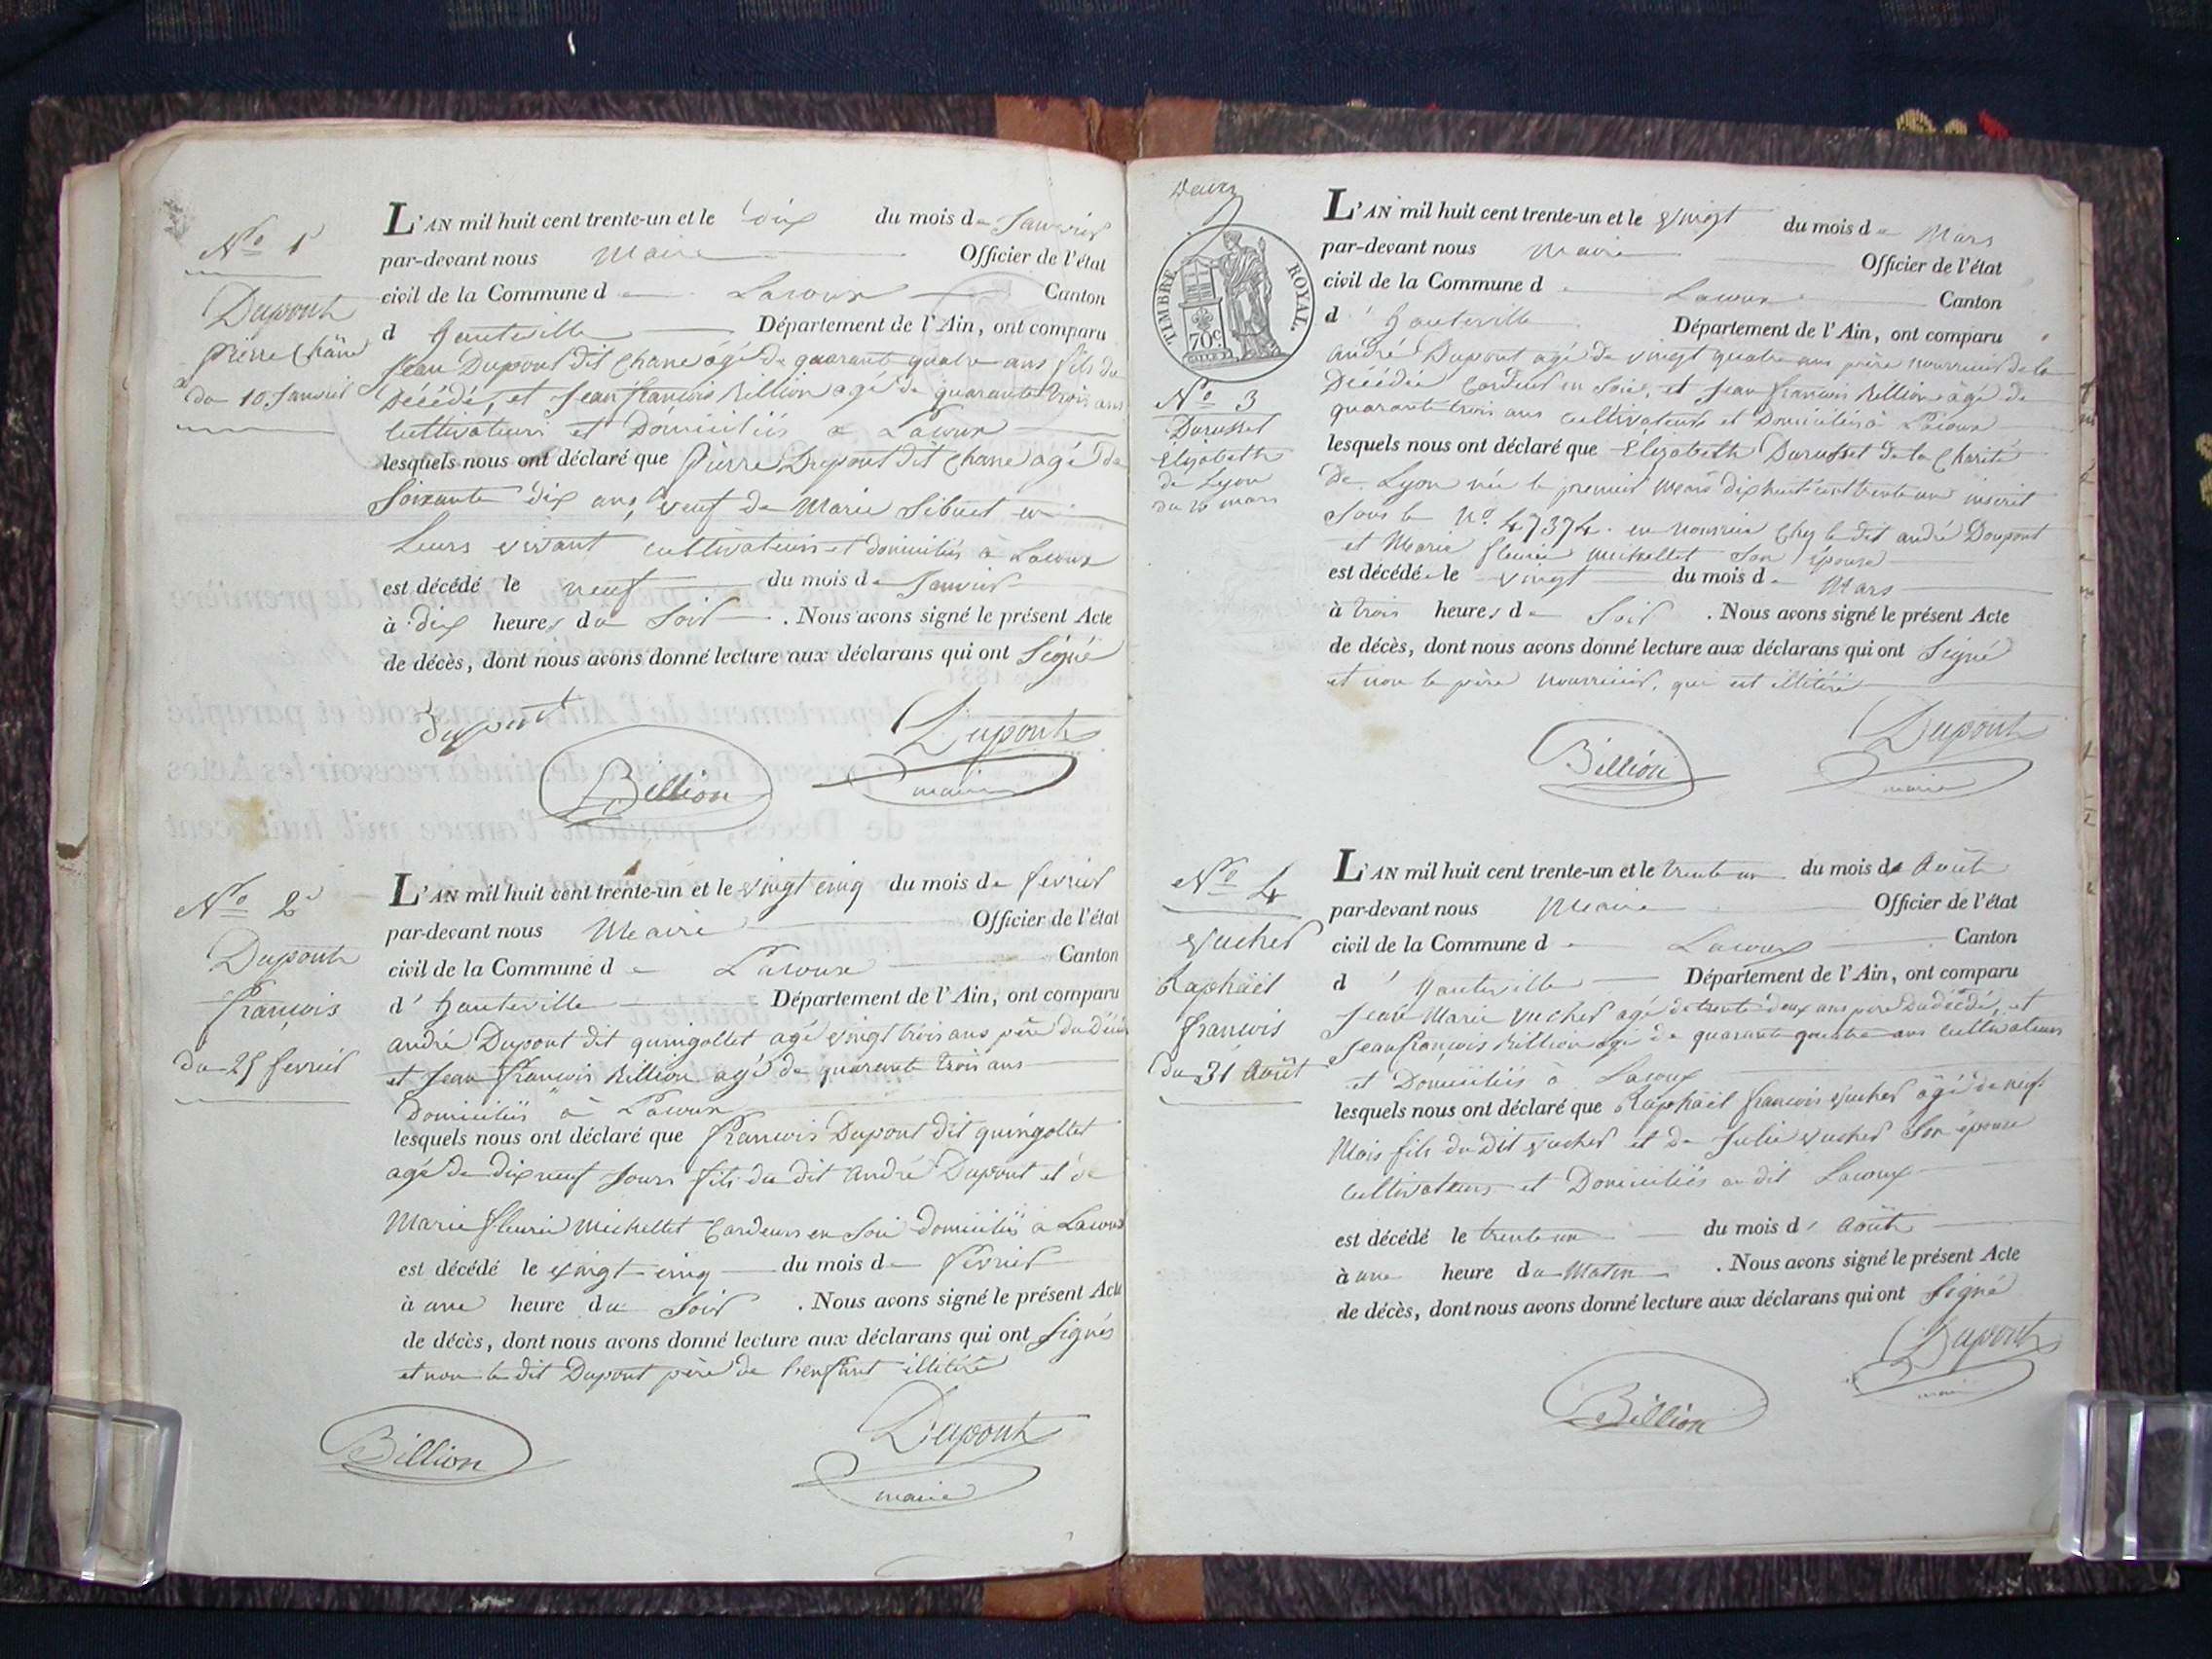 No 1er
Dupont
Pierre Chane
du 10 Janvier
L'AN mil huit cent trente-un et le dix du mois de Janvier
par-devant nous Maire Officier de l'état
civil de la Commune de Lacoux Canton
d'hauteville Département de l'Ain, ont comparu
Jean Dupont dit Chane agé de quarante quatre ans fils du
Décédé, et Jean françois Billion agé de quarante trois ans
Cultivateurs et Domiciliés a Lacoux
lesquels nous ont déclaré que Pierre Dupont dit Chane agé de
Soixante dix ans, veuf de Marie Sibuet en
Leurs vivant cultivateurs et domiciliés à Lacoux
est décédé le neuf du mois de Janvier
à dix heures du Soir. Nous avons signé le présent Acte
de décès, dont nous avons donné lecture aux déclarans qui ont Signé
dupont
Dupont
Billion
maire
No 2e
Dupont
françois
du 25 fevrier
L'AN mil huit cent trente-un et le vingt cinq du mois de fevrier
par-devant nous Maire Officier de l'état
civil de la Commune de Lacoux Canton
d'hauteville Département de l'Ain, ont comparu
andré Dupont dit quingollet agé vingt trois ans père du
et Jean françois Billion agé de quarante trois ans
Domiciliés à Lacoux
lesquels nous ont déclaré que françois Dupont dit quingollet
agé de dix neuf Jours fils du dit André Dupont et de
Marie fleurie Michellet Cardeurs en Soie domiciliés à Lacoux
est décédé le vingt-cinq du mois de fevrier
à une heure du Soir. Nous avons signé le présent Acte
de décès, dont nous avons donné lecture aux déclarans qui ont Signés
et non le dit Dupont père de l'enfant illitéré
Billion
Dupont
maire
TIMBRE ROYAL.
70c.
No 3
Durusset
Elizabeth
de Lyon
du 20 mars
L'AN mil huit cent trente-un et le Vingt du mois de Mars
par-devant nous Maire Officier de l'état
civil de la Commune de Lacoux Canton
d'hauteville Département de l'Ain, ont comparu
André Dupont agé de vingt quatre ans père nourricier de la
Décédée Cardeur en Soie, et Jean françois Billion agé de
quarante trois ans cultivateurs et Domiciliés à Lacoux
lesquels nous ont déclaré que Elizabeth Durusset de la Charité
De Lyon née le premier Mars dix huit cent trente un inscrit
Sous le No. 47374. en nourrice Chez le dit andré Doupont
et Marie fleurie Michellet Son épouse
est décédée le vingt du mois de Mars
à trois heures de Soir. Nous avons signé le présent Acte
de décès, dont nous avons donné lecture aux déclarans qui ont Signé
et non le père nourricier, qui est illitéré
Billion
Dupont
maire
No 4
Vucher
Raphaël
françois
du 31 Août
L'AN mil huit cent trente-un et le trente un du mois d'Août
par-devant nous Maire Officier de l'état
civil de la Commune de Lacoux Canton
d'hauteville Département de l'Ain, ont comparu
Jean Marie Vucher agé de trente deux ans pere du décédé, et
Jean françois Billion agé de quarante quatre ans Cultivateurs
et Domiciliés à Lacoux
lesquels nous ont déclaré que Raphaël françois Vucher agé de neuf
Mois fils du dit Vucher et de Julie Vucher Son épouse
Cultivateurs et Domiciliés au dit Lacoux
est décédé le trente un du mois d'Août
à une heure du Matin. Nous avons signé le présent Acte
de décès, dont nous avons donné lecture aux déclarans qui ont Signé
Dupont
maire
Billion